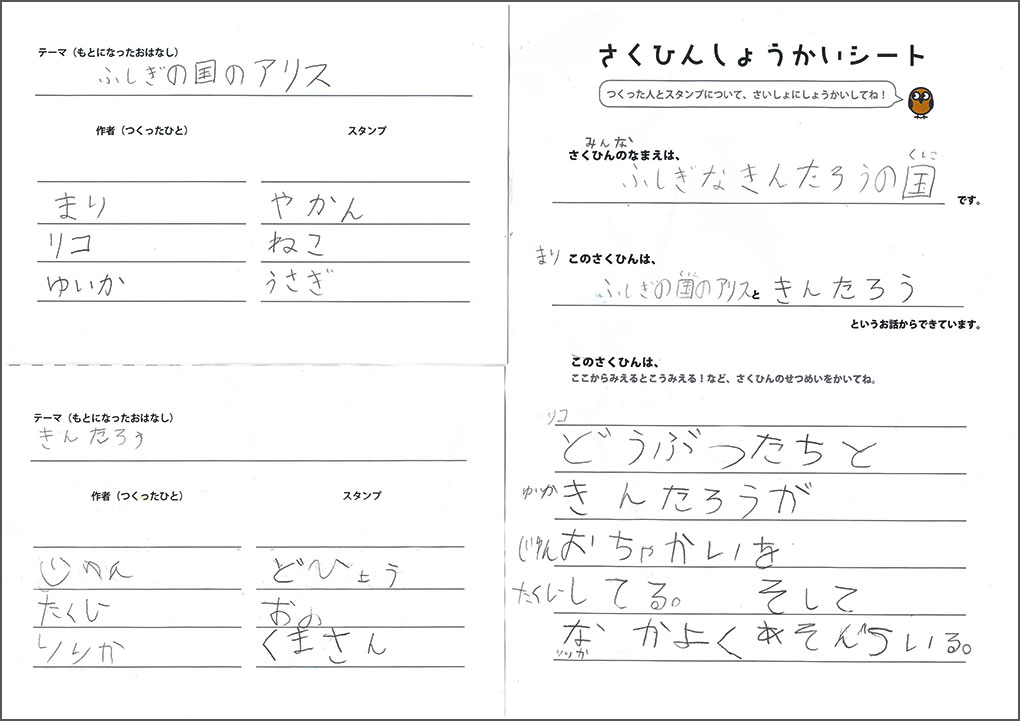 テーマ（もとになったおはなし）
ふしぎの国のアリス
作者（つくったひと） スタンプ
まり やかん
リコ ねこ
ゆいか うさぎ
テーマ（もとになったおはなし）
きんたろう
作者（つくったひと） スタンプ
じゅん どひょう
たくじ おの
りりか くまさん
さくひんしょうかいシート
つくった人とスタンプについて、さいしょにしょうかいしてね！
みんな
さくひんのなまえは、
くに
ふしぎなきんたろうの国
です。
まり このさくひんは、
くに
ふしぎの国のアリスときんたろう
というお話からできています。
このさくひんは、
ここからみえるとこうみえる！など、さくひんのせつめいをかいてね。
リコ
どうぶつたちと
ゆいか きんたろうが
じゅん おちゃかいを
たくじ してる。 そして
なかよくあそんでいる。
りりか